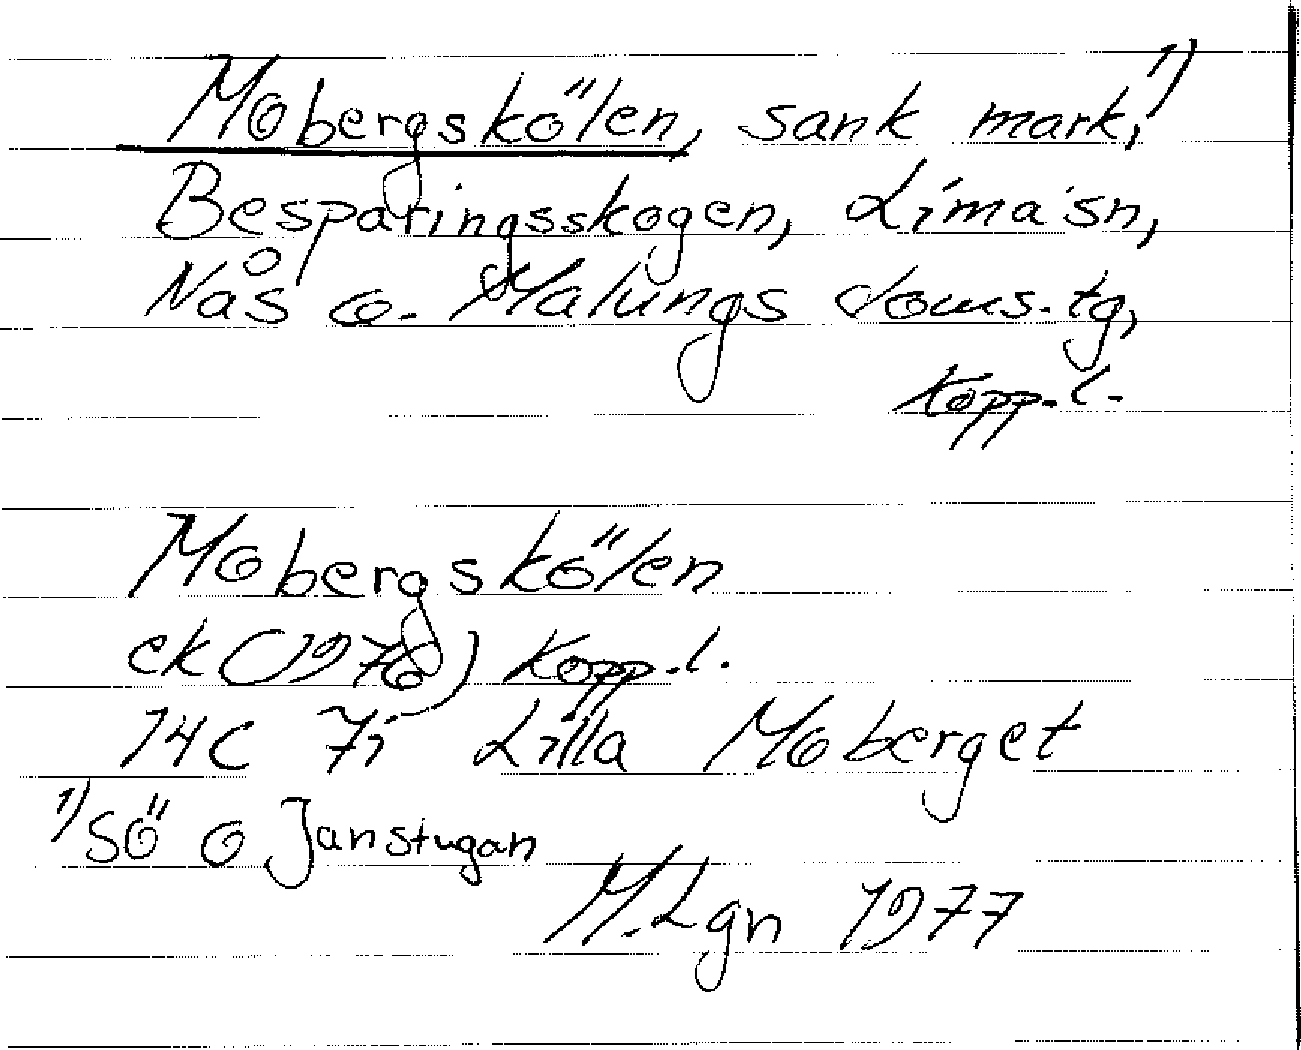 Mobergskölen, sank mark,1)
Besparingsskogen, Lima sn,
Nås o. Malungs doms.tg,
Kopp.l.
Mobergskölen
ek (1976) Kopp.l.
14C 7i Lilla Moberget
1) SÖ o Janstugan
M.Lgn 1977